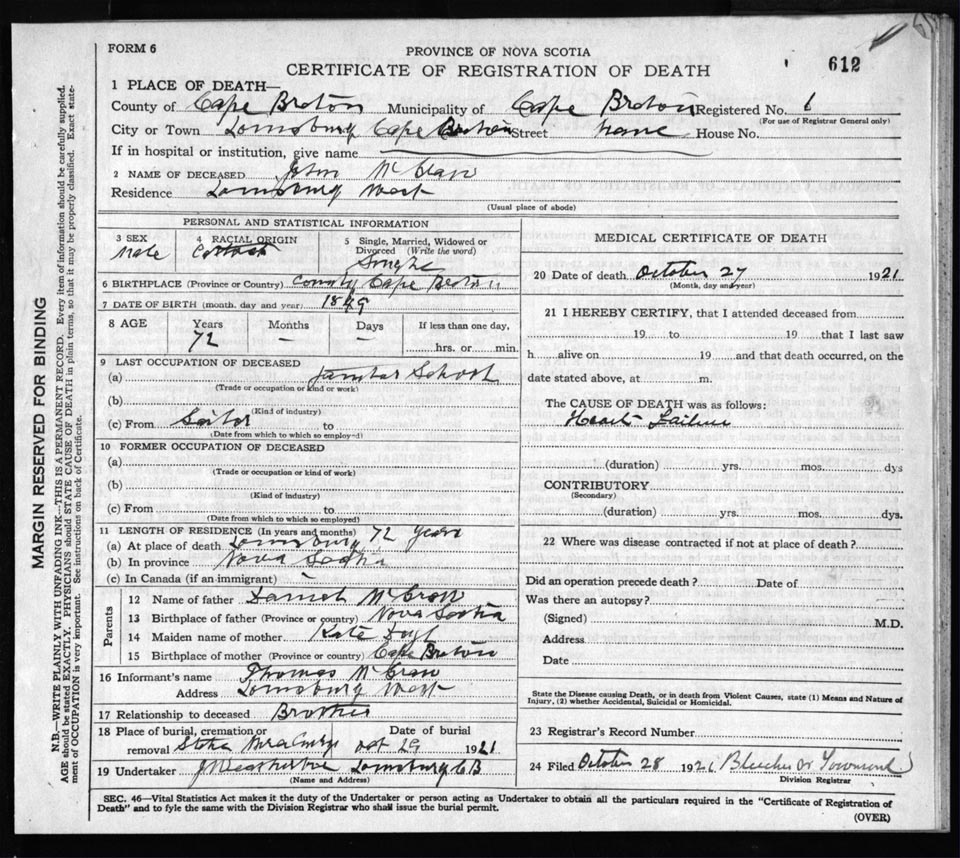 FORM 6
PROVINCE OF NOVA SCOTIA
CERTIFICATE OF REGISTRATION OF DEATH
612
1 PLACE OF DEATH—
County of Cape Breton Municipality of Cape Breton Registered No. 6
(For use of Registrar General only)
City or Town Louisburg Cape Breton Street House No.
If in hospital or institution, give name
2 NAME OF DECEASED John
Residence Louisburg West
(Usual place of abode)
PERSONAL AND STATISTICAL INFORMATION
3 SEX Male
4 RACIAL ORIGIN
5 Single, Married, Widowed or Divorced (Write the word) Single
6 BIRTHPLACE (Province or Country) County Cape Breton
7 DATE OF BIRTH (month, day and year) 1849
8 AGE Years 72 Months – Days – If less than one day, hrs. or min.
9 LAST OCCUPATION OF DECEASED
(a) School
(Trade or occupation or kind or work)
(b)
(Kind of industry)
(c) From to
(Date from which to which so employed)
10 FORMER OCCUPATION OF DECEASED
(a)
(Trade or occupation or kind of work)
(b)
(Kind of industry)
(c) From to
(Date from which to which so employed)
11 LENGTH OF RESIDENCE (In years and months)
(a) At place of death Louisburg 72 years
(b) In province Nova Scotia
(c) In Canada (if an immigrant) –
Parents
12 Name of father
13 Birthplace of father (Province or country) Nova Scotia
14 Maiden name of mother Kate
15 Birthplace of mother (Province or country) Cape Breton
16 Informant's name Thomas
Address Louisburg West
17 Relationship to deceased Brother
18 Place of burial, cremation or removal Date of burial Oct 29 1921
19 Undertaker Louisburg C B
(Name and Address)
MEDICAL CERTIFICATE OF DEATH
20 Date of death October 27 1921
(Month, day and year)
21 I HEREBY CERTIFY, that I attended deceased from
19 to 19 that I last saw
h alive on 19 and that death occurred, on the
date stated above, at m.
The CAUSE OF DEATH was as follows:
Heart Failure
(duration) yrs. mos. dys
CONTRIBUTORY
(Secondary)
(duration) yrs. mos. dys.
22 Where was disease contracted if not at place of death?
Did an operation precede death? Date of
Was there an autopsy?
(Signed) M.D.
Address
Date
State the Disease causing Death, or in death from Violent Causes, state (1) Means and Nature of
Injury, (2) whether Accidental, Suicidal or Homicidal.
23 Registrar's Record Number
24 Filed October 28 192 Townsend
Division Registrar
SEC. 46—Vital Statistics Act makes it the duty of the Undertaker or person acting as Undertaker to obtain all the particulars required in the "Certificate of Registration of
Death" and to fyle the same with the Division Registrar who shall issue the burial permit.
(OVER)
MARGIN RESERVED FOR BINDING
N.B.—WRITE PLAINLY WITH UNFADING INK—THIS IS A PERMANENT RECORD. Every item of information should be carefully supplied.
AGE should be stated EXACTLY. PHYSICIANS should STATE CAUSE OF DEATH in plain terms, so that it may be properly classified. Exact state-
ment of OCCUPATION is very important. See instructions on back of Certificate.